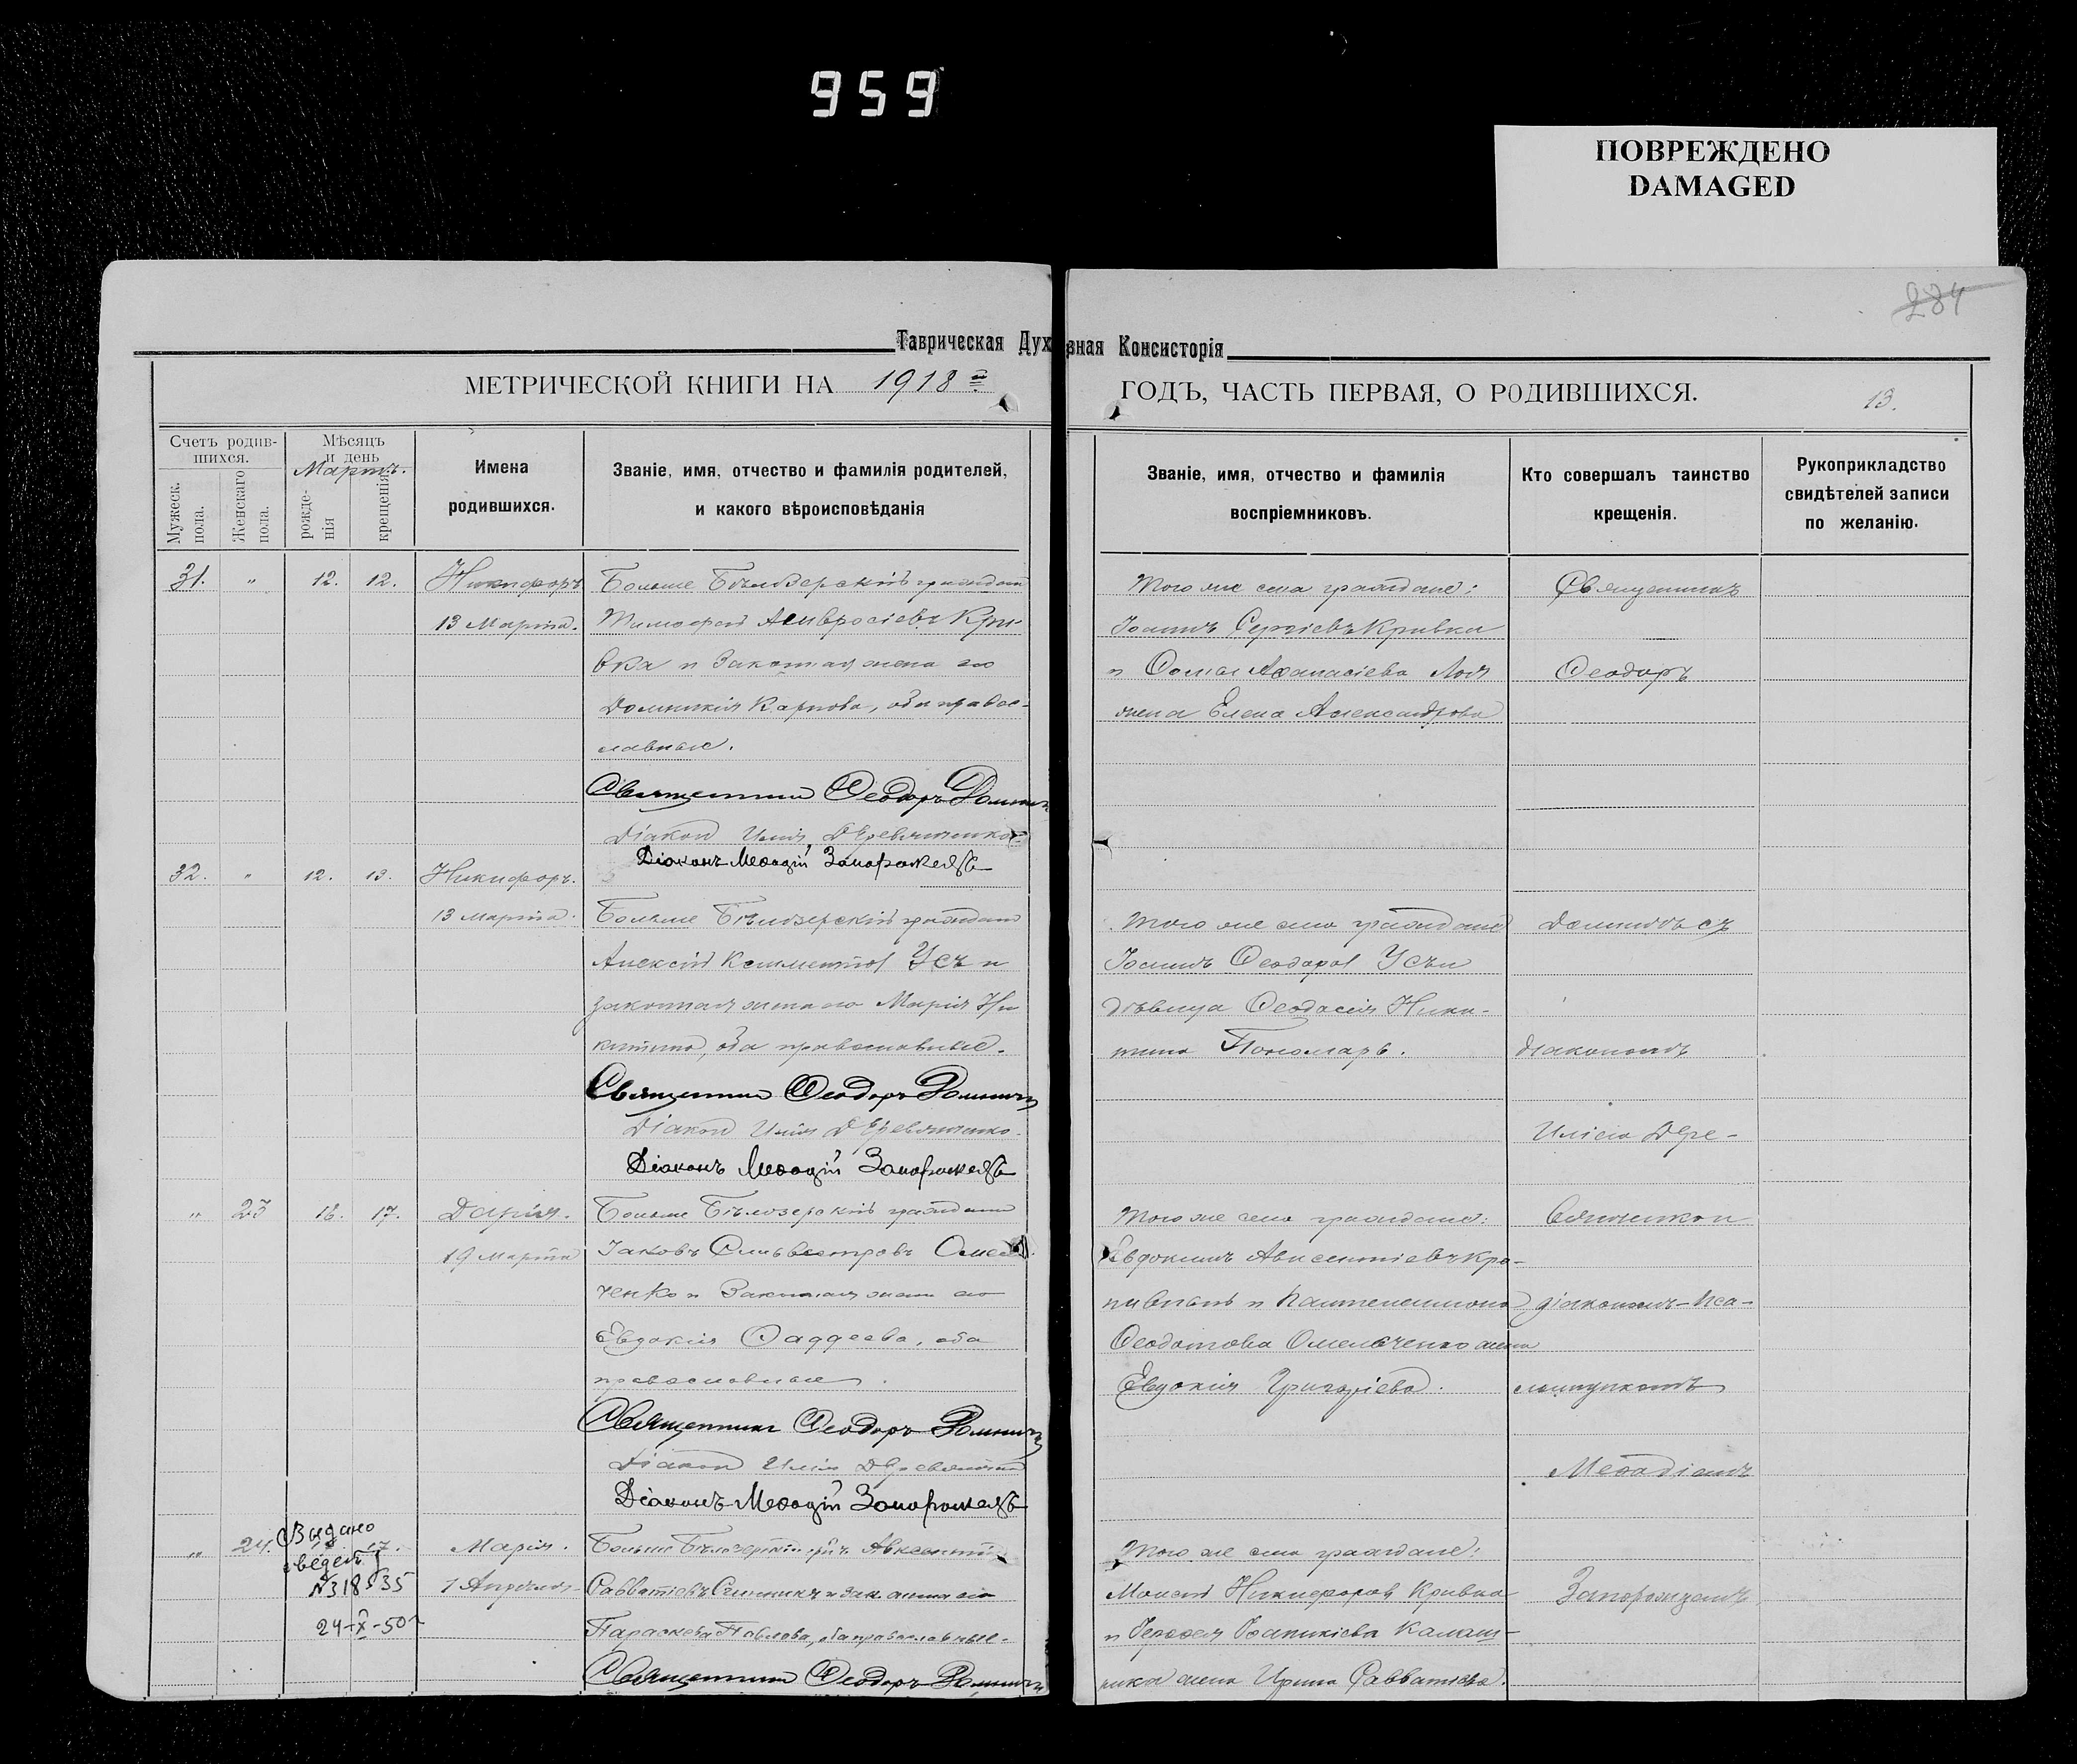 959
ПОВРЕЖДЕНО
DAMAGED
284
Таврическая Духовная Консисторія
МЕТРИЧЕСКОЙ КНИГИ НА 1918 й
ГОДЪ, ЧАСТЬ ПЕРВАЯ, О РОДИВШИХСЯ.
13.
Счетъ родив-
шихся.
Мужеск. пола.
Женскаго пола.
Мѣсяцъ
и день
Мартъ.
рожде-
нія
крещенія
Имена
родившихся.
Званіе, имя, отчество и фамилія родителей,
и какого вѣроисповѣданія
Званіе, имя, отчество и фамилія
воспріемниковъ.
Кто совершалъ таинство
крещенія.
Рукоприкладство
свидѣтелей записи
по желанію.
31. " 12. 12. Никифоръ
13 Марта.
Больше Бѣлозерскій гражданин
Тимофей Амвросіевъ Кри-
вка и законная жена его
Домникія Карпова, оба право-
славные.
Священник Ѳеодоръ
Діакон Илія Деревянченко
Діаконъ Меѳодій Запорожецъ
Того же села граждане:
Іоаннъ Сергіевъ Кривка
и Ѳомы Аѳанасіева
жена Елена Александрова
Священникъ
Ѳеодоръ
32. " 12. 13. Никифоръ.
13 Марта.
Больше Бѣлозерскій гражданин
Алексій Климентов Усъ и
законная жена его Марія Ни
китина, оба православные.
Священник Ѳеодоръ
Діакон Илія Деревянченко.
Діаконъ Меѳодій Запорожецъ
Того же села граждане
Іоаннъ Ѳеодоров Усъ и
дѣвица Ѳеодосія Ники-
тина Пономарь.
съ
діакономъ
Иліею Дере-
" 23 16. 17. Дарія.
19 Марта
Больше Бѣлозерскій гражданин
Іаковъ Сильвестровъ Омель
ченко и законная жена его
Евдокія Ѳаддеева, оба
православные.
Священникъ Ѳеодоръ
Діакон Илія Деревянченко
Діаконъ Меѳодій Запорожецъ
Того же села граждане:
Евдокимъ Авксентіевъ Кро-
пивный и Пантелеимона
Ѳеодотова Омельченко жена
Евдокія Григоріева.
вянченкои
діакономъ-Пса-
ломщикомъ
Меѳодіемъ
" 24. 17. Марія.
Выдано
сведен.
№318535
24-X-50 г
1 Апрѣля
Больше Бѣлозерскій гр-нъ Авксентій
Савватіевъ и зак. жена его
Параскева Павлова, оба православные.
Священник Ѳеодоръ
Того же села граждане:
Моисей Никифоров Кривка
и
жена Ирина Савватіева.
Запорожцемъ